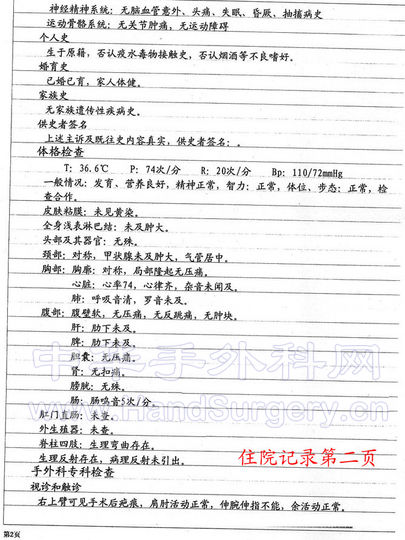 神经精神系统：无脑血管意外、头痛、失眠、昏厥、抽搐病史
运动骨骼系统：无关节肿痛，无运动障碍
个人史
生于原籍，否认疫水毒物接触史，否认烟酒等不良嗜好。
婚育史
已婚已育，家人体健。
家族史
无家族遗传性疾病史。
供史者签名
上述主诉及既往史内容真实，供史者签名：。
体格检查
T：36.6℃ P：74次/分 R：20次/分 Bp：110/72mmHg
一般情况：发育、营养良好，精神正常，智力：正常，体位、步态：正常，检
查合作。
皮肤粘膜：未见黄染。
全身浅表淋巴结：未及肿大。
头部及其器官：无殊。
颈部：对称，甲状腺未及肿大，气管居中。
胸部：胸廓：对称，局部隆起无压痛。
心脏：心率74，心律齐，杂音未闻及。
肺：呼吸音清，罗音未及。
腹部：腹壁软，无压痛，无反跳痛，无肿块。
肝：肋下未及。
脾：肋下未及。
胆囊：无压痛。
肾：无扣痛。
膀胱：无殊。
肠：肠鸣音5次/分。
肛门直肠：未查。
外生殖器：未查。
脊柱四肢：生理弯曲存在。
生理反射存在，病理反射未引出。
手外科专科检查
视诊和触诊
右上臂可见手术后疤痕，肩肘活动正常，伸腕伸指不能，余活动正常。
第2页
住院记录第二页
中华手外科网
www.HandSurgery.cn